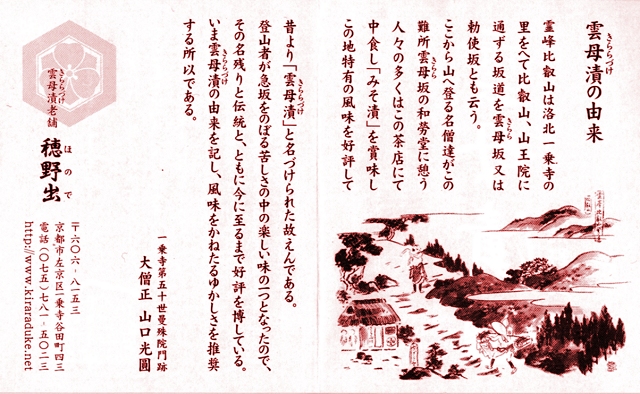 雲母漬の由来
きららづけ
霊峰比叡山は洛北一乗寺の
里をへて比叡山、山王院に
通ずる坂道を雲母坂又は
きらら
勅使坂とも云う。
ここから山へ登る名僧達がこの
難所雲母坂の和労堂に憩う
きらら
人々の多くはこの茶店にて
中食し「みそ漬」を賞味し
この地特有の風味を好評して
昔より「雲母漬」と名づけられた故えんである。
きららづけ
登山者が急坂をのぼる苦しさの中の楽しい味の一つとなったので、
その名残りと伝統と、ともに今に至るまで好評を博している。
いま雲母漬の由来を記し、風味をかねたるゆかしさを推奨
きららづけ
する所以である。
一乗寺第五十世曼殊院門跡
大僧正 山口光圓
雲母漬老舗
きららづけ
穂野出
ほので
〒六〇六-八一五三
京都市左京区一乗寺谷田町四三
電話(〇七五)七八一-五〇二三
http://www.kiraraduke.net